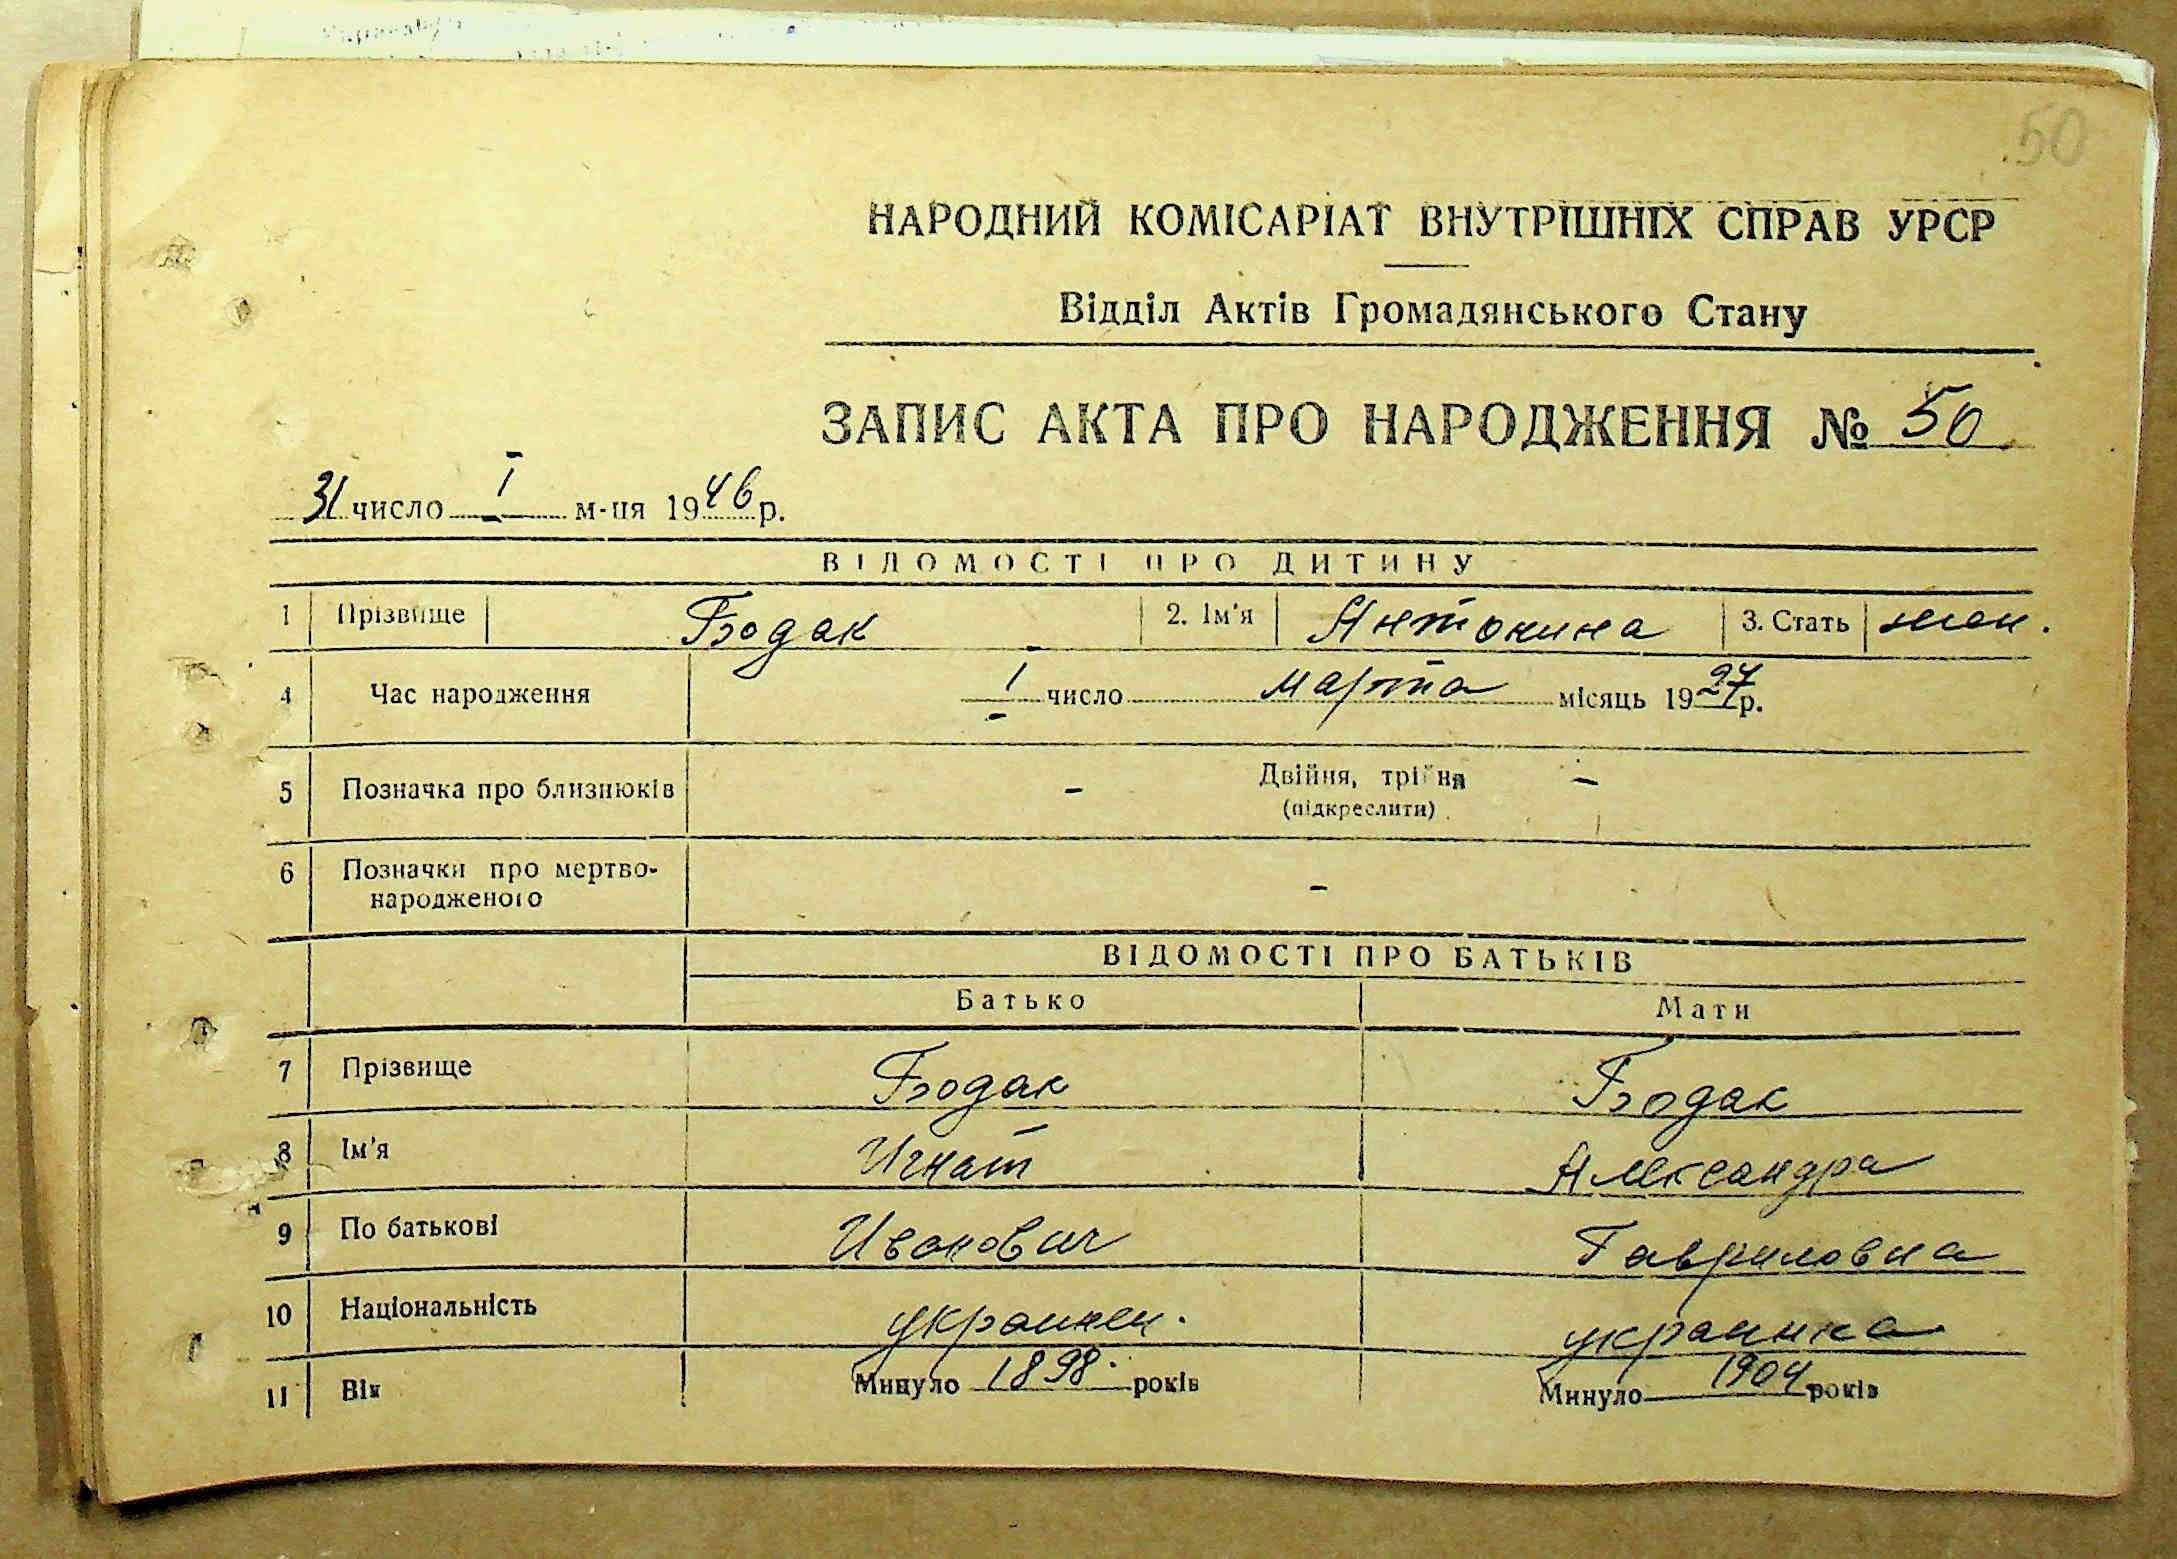 50
НАРОДНИЙ КОМІСАРІАТ ВНУТРІШНІХ СПРАВ УРСР
Відділ Актів Громадянського Стану
ЗАПИС АКТА ПРО НАРОДЖЕННЯ № 50
31 число I м-ця 1946 р.
ВІДОМОСТІ ПРО ДИТИНУ
1 Прізвище Бодак 2. Ім'я Антонина 3. Стать жен.
4 Час народження 1 число марта місяць 1927 р.
5 Позначка про близнюків - Двійня, трійня -
(підкреслити)
6 Позначки про мертво-
народженого -
ВІДОМОСТІ ПРО БАТЬКІВ
Батько Мати
7 Прізвище Бодак Бодак
8 Ім'я Игнат Александра
9 По батькові Иванович Гавриловна
10 Національність украинец. украинка
11 Вік Минуло 1898 років Минуло 1904 років